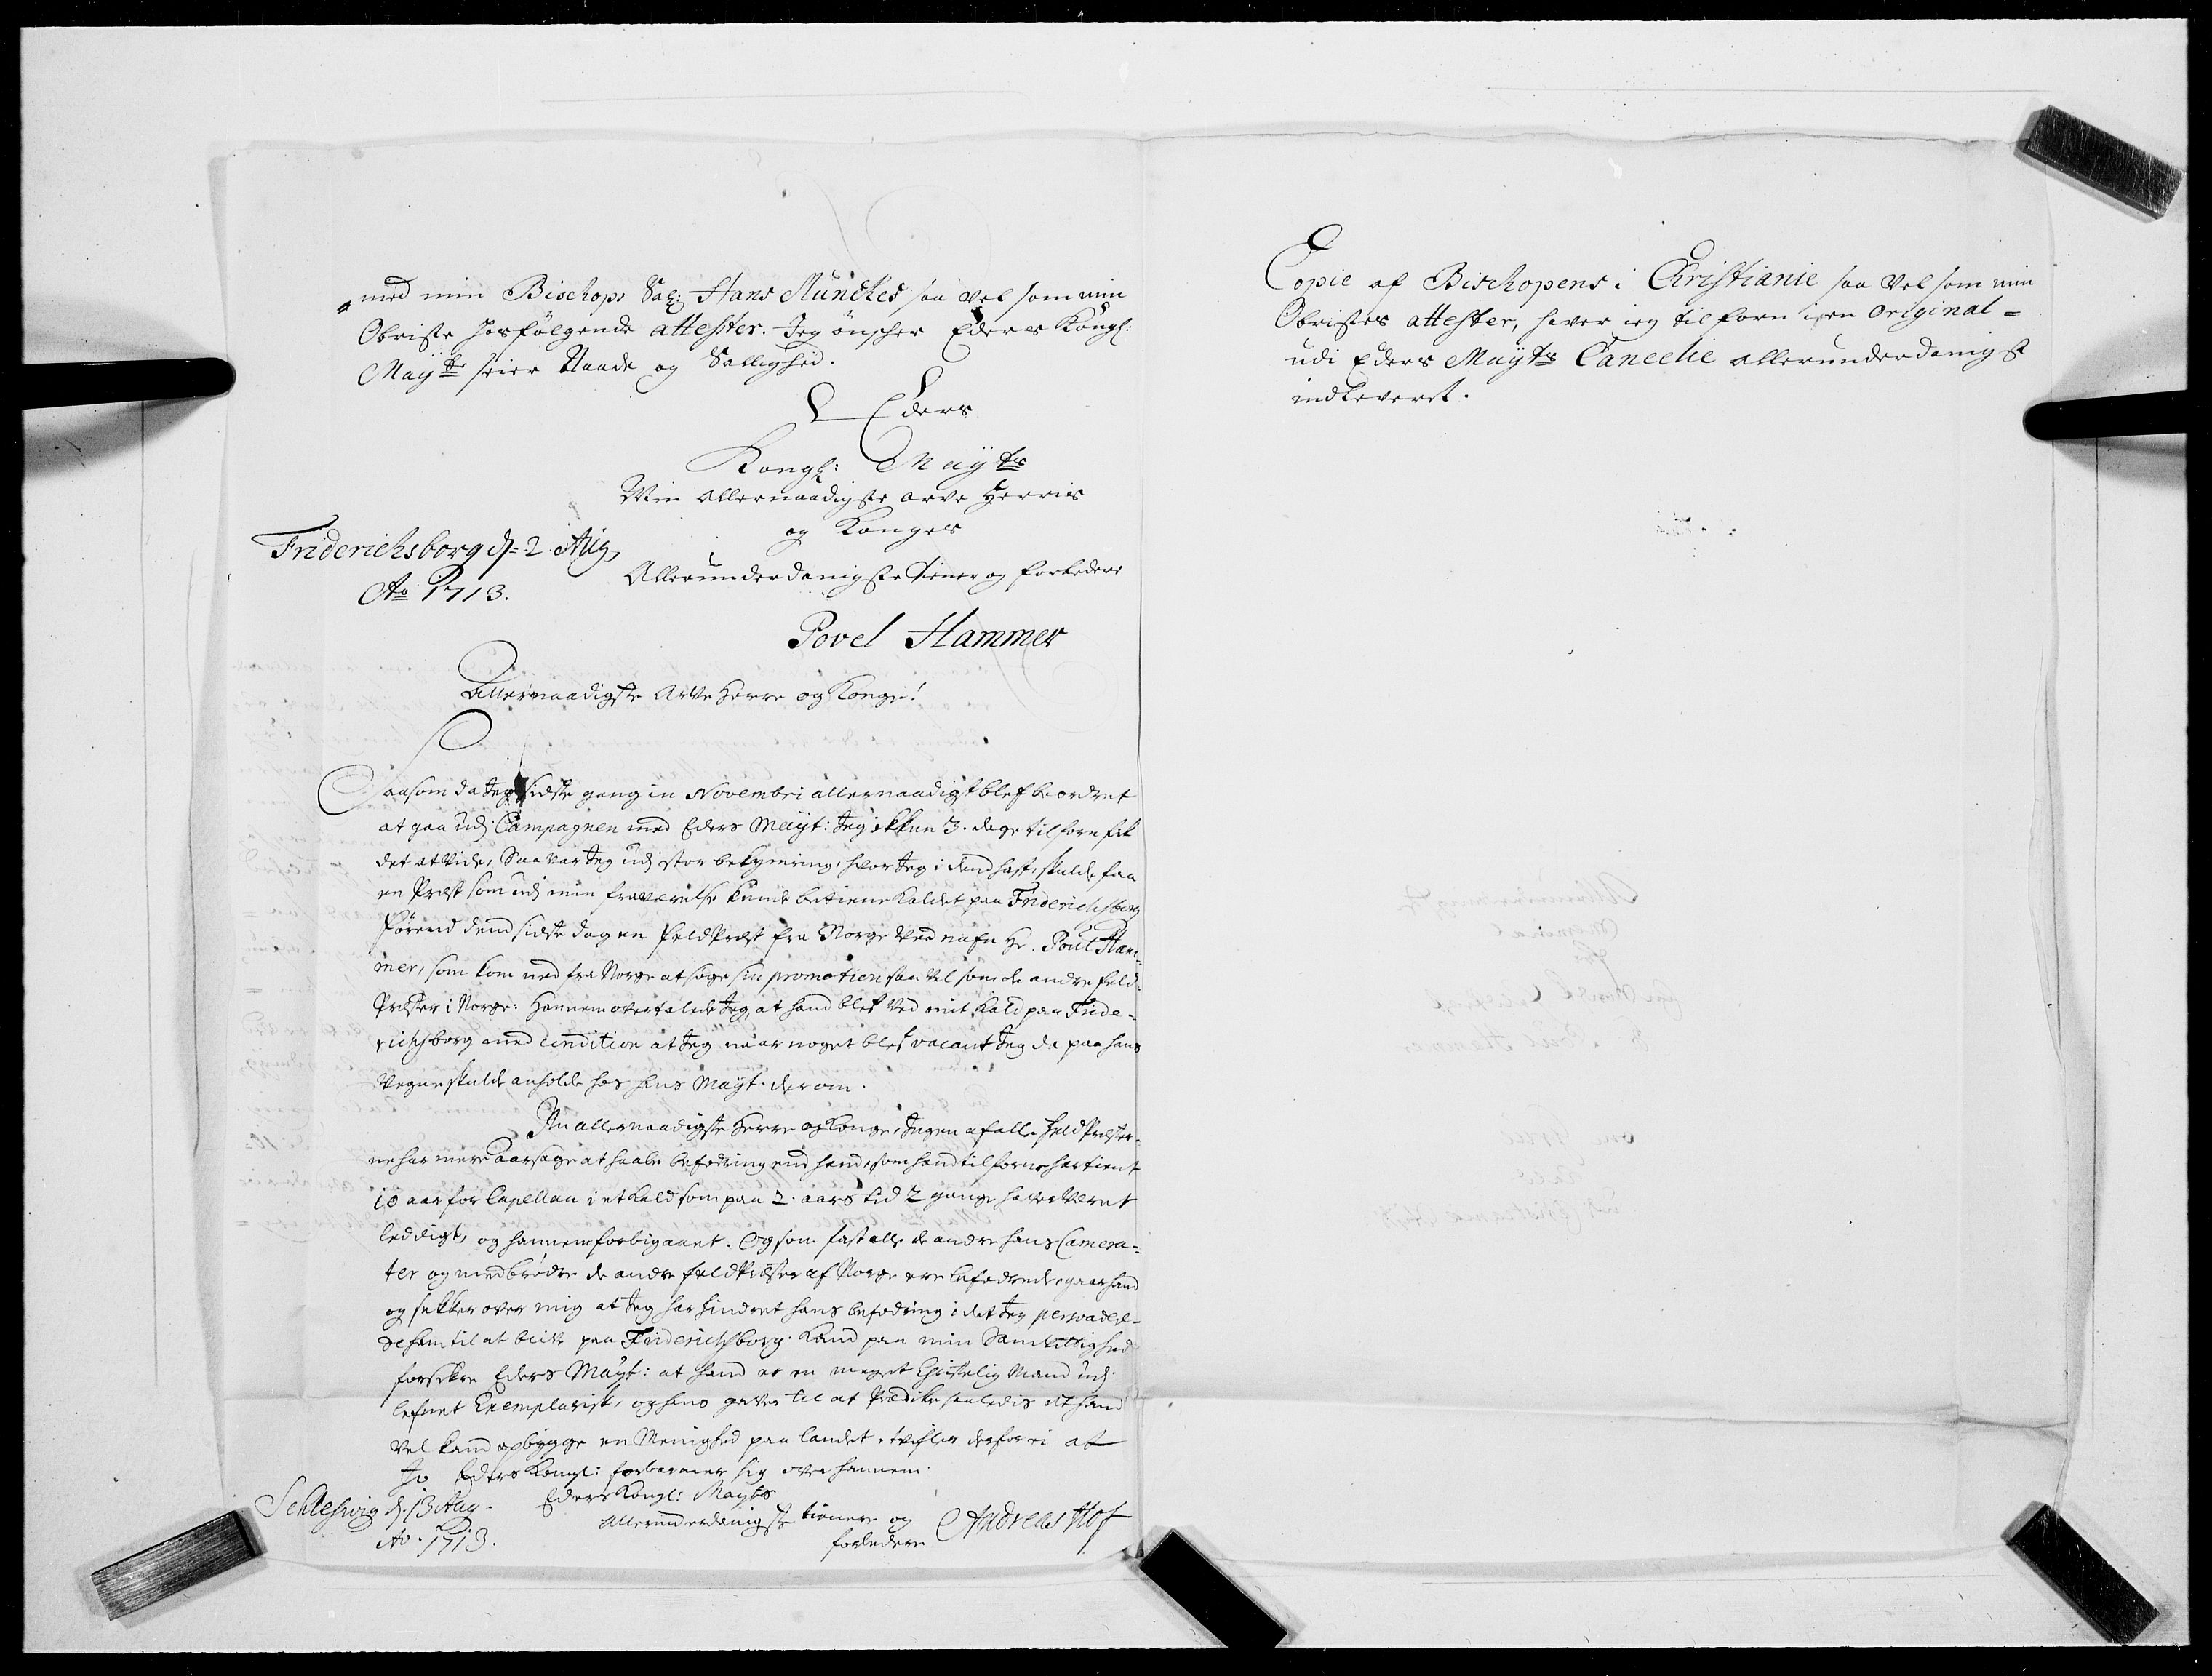 med min Bischops Sal: Hans Munckes saa vel som min
Obriste hosfølgende attester. Jeg ønscher Eders Kongl:
Mayts seier Naade og Sallighed.
Eders
Kongl: Mayts
Min allernaadigste arve Herris
og Konges
Friderichsborg d= 2 Aug,
Allerunderdanigste tiener og forbedere
Ao 1713.
Povel Hammer
Allernaadigste Arve Herre og Konge!
Saasom da Jeg sidste gang in Novembri allernaadigst blef beordret
at gaa udj Campagnen med Eders Mayt: Jeg ikkun 3. dage tilforn fik
det at vide, Saa var Jeg udj stor bekymring, hvor Jeg i dend hast, skulde faa
en Præst som udj min fraværelse kunde betiene Kaldet paa Friderichsborg
førend dend sidste dag en feldPræst fra Norge ved nafn Hr. Poul Ham-
mer, som kom ned fra Norge at søge sin promotion saa vel som de andre feld-
Præster i Norge: Hannem overtalede Jeg, at hand blef ved mit Kald paa Fride-
richsborg med Condition at Jeg naar noget blef vacant Jeg da paa hans
Vegne skulde anholde hos hans Mayt. derom.
Nu allernaadigste Herre og Konge, Ingen af alle feldPræster-
ne har mere Aarsage at haabe befodring end hand, som hand tilforne har tient
10 aar for Capellan i et Kald som paa 2. aars tid 2 gange haver været
leddigt, og hannem forbigaaet. Og som fast alle de andre hans Camera-
ter og medbrødre de andre feldPræster af Norge ere befodrede, gaar hand
og sukker over mig at Jeg har hindret hans befodring i det Jeg persvadee-
de ham til at blive paa Friderichsborg. Kand paa min Samvittighed
forsikre Eders Mayt: at hand er en meget Christelig Mand udj
lefnet Exemplarisk, og hans gaver til at Prædike saaledis at hand
vel kand opbygge en Menighed paa landet, tvifler derfor ei at
Jo Eders Kongl: forbarmer sig over hannem.
Eders Kongl: Mayts
Schleswig d. 13 Aug.
allerunderdanigste tienere og
Ao. 1713.
forbedere
Andreas Hof
Copie af Bischopens i Christianie saa vel som min
Obristes attester, haver ieg tilforn i en Original=
udi Eders Mayts Cancelie allerunderdanigst
indleveret.